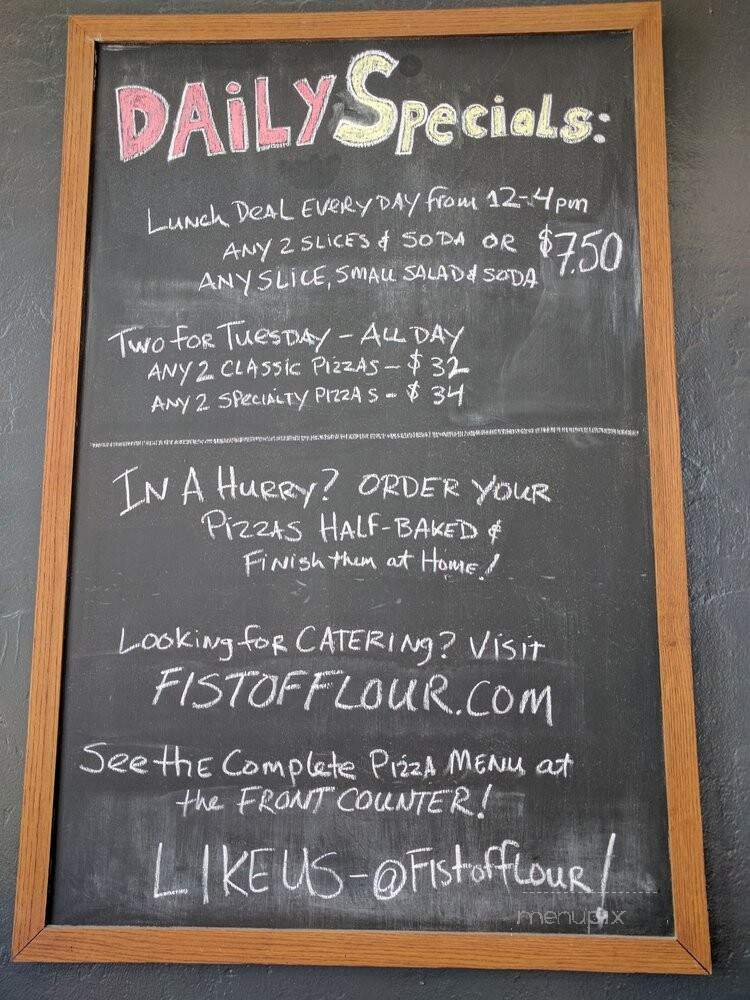 DAiLY Specials:
Lunch Deal Every Day from 12-4pm
Any 2 Slices & Soda or $7.50
Any Slice, Small Salad & Soda
Two for Tuesday - All Day
Any 2 Classic Pizzas - $32
Any 2 Specialty Pizzas - $34
In A Hurry? Order Your
Pizzas Half-Baked &
Finish them at Home!
Looking for Catering? Visit
FISTOFFLOUR.COM
See the Complete Pizza Menu at
the Front Counter!
LIKE US - @Fistofflour!
menupix